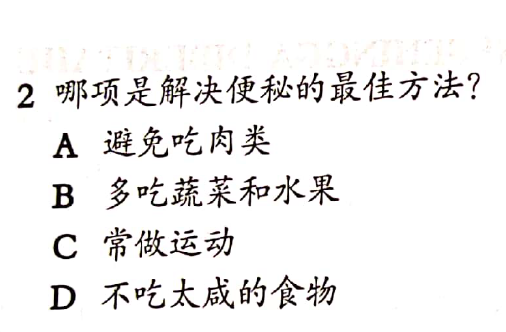 2 哪项是解决便秘的最佳方法？
A 避免吃肉类
B 多吃蔬菜和水果
C 常做运动
D 不吃太咸的食物